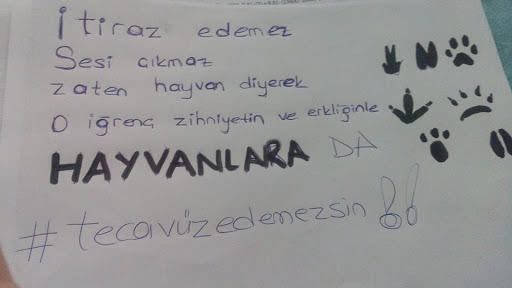 İtiraz edemez
Sesi çıkmaz
zaten hayvan diyerek
O iğrenç zihniyetin ve erkliğinle
HAYVANLARA DA
#tecavüzedemezsin!!